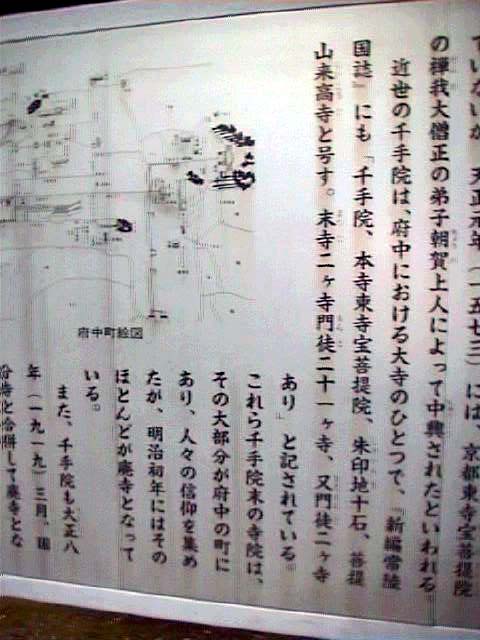 ていないが、天正元年(一五七三)には、京都東寺宝菩提院
の禅我大僧正の弟子朝賀上人によって中興されたといわれる
近世の千手院は、府中における大寺のひとつで、『新編常陸
国誌』にも「千手院、本寺東寺宝菩提院、朱印地十石、菩提
山来高寺と号す。末寺二ヶ寺門徒二十一ヶ寺、又門徒二ヶ寺
あり」と記されている。
これら千手院末の寺院は、
その大部分が府中の町に
あり、人々の信仰を集め
たが、明治初年にはその
ほとんどが廃寺となって
いる。
また、千手院も大正八
年(一九一九)三月、国
分寺と合併して廃寺とな
府中町絵図